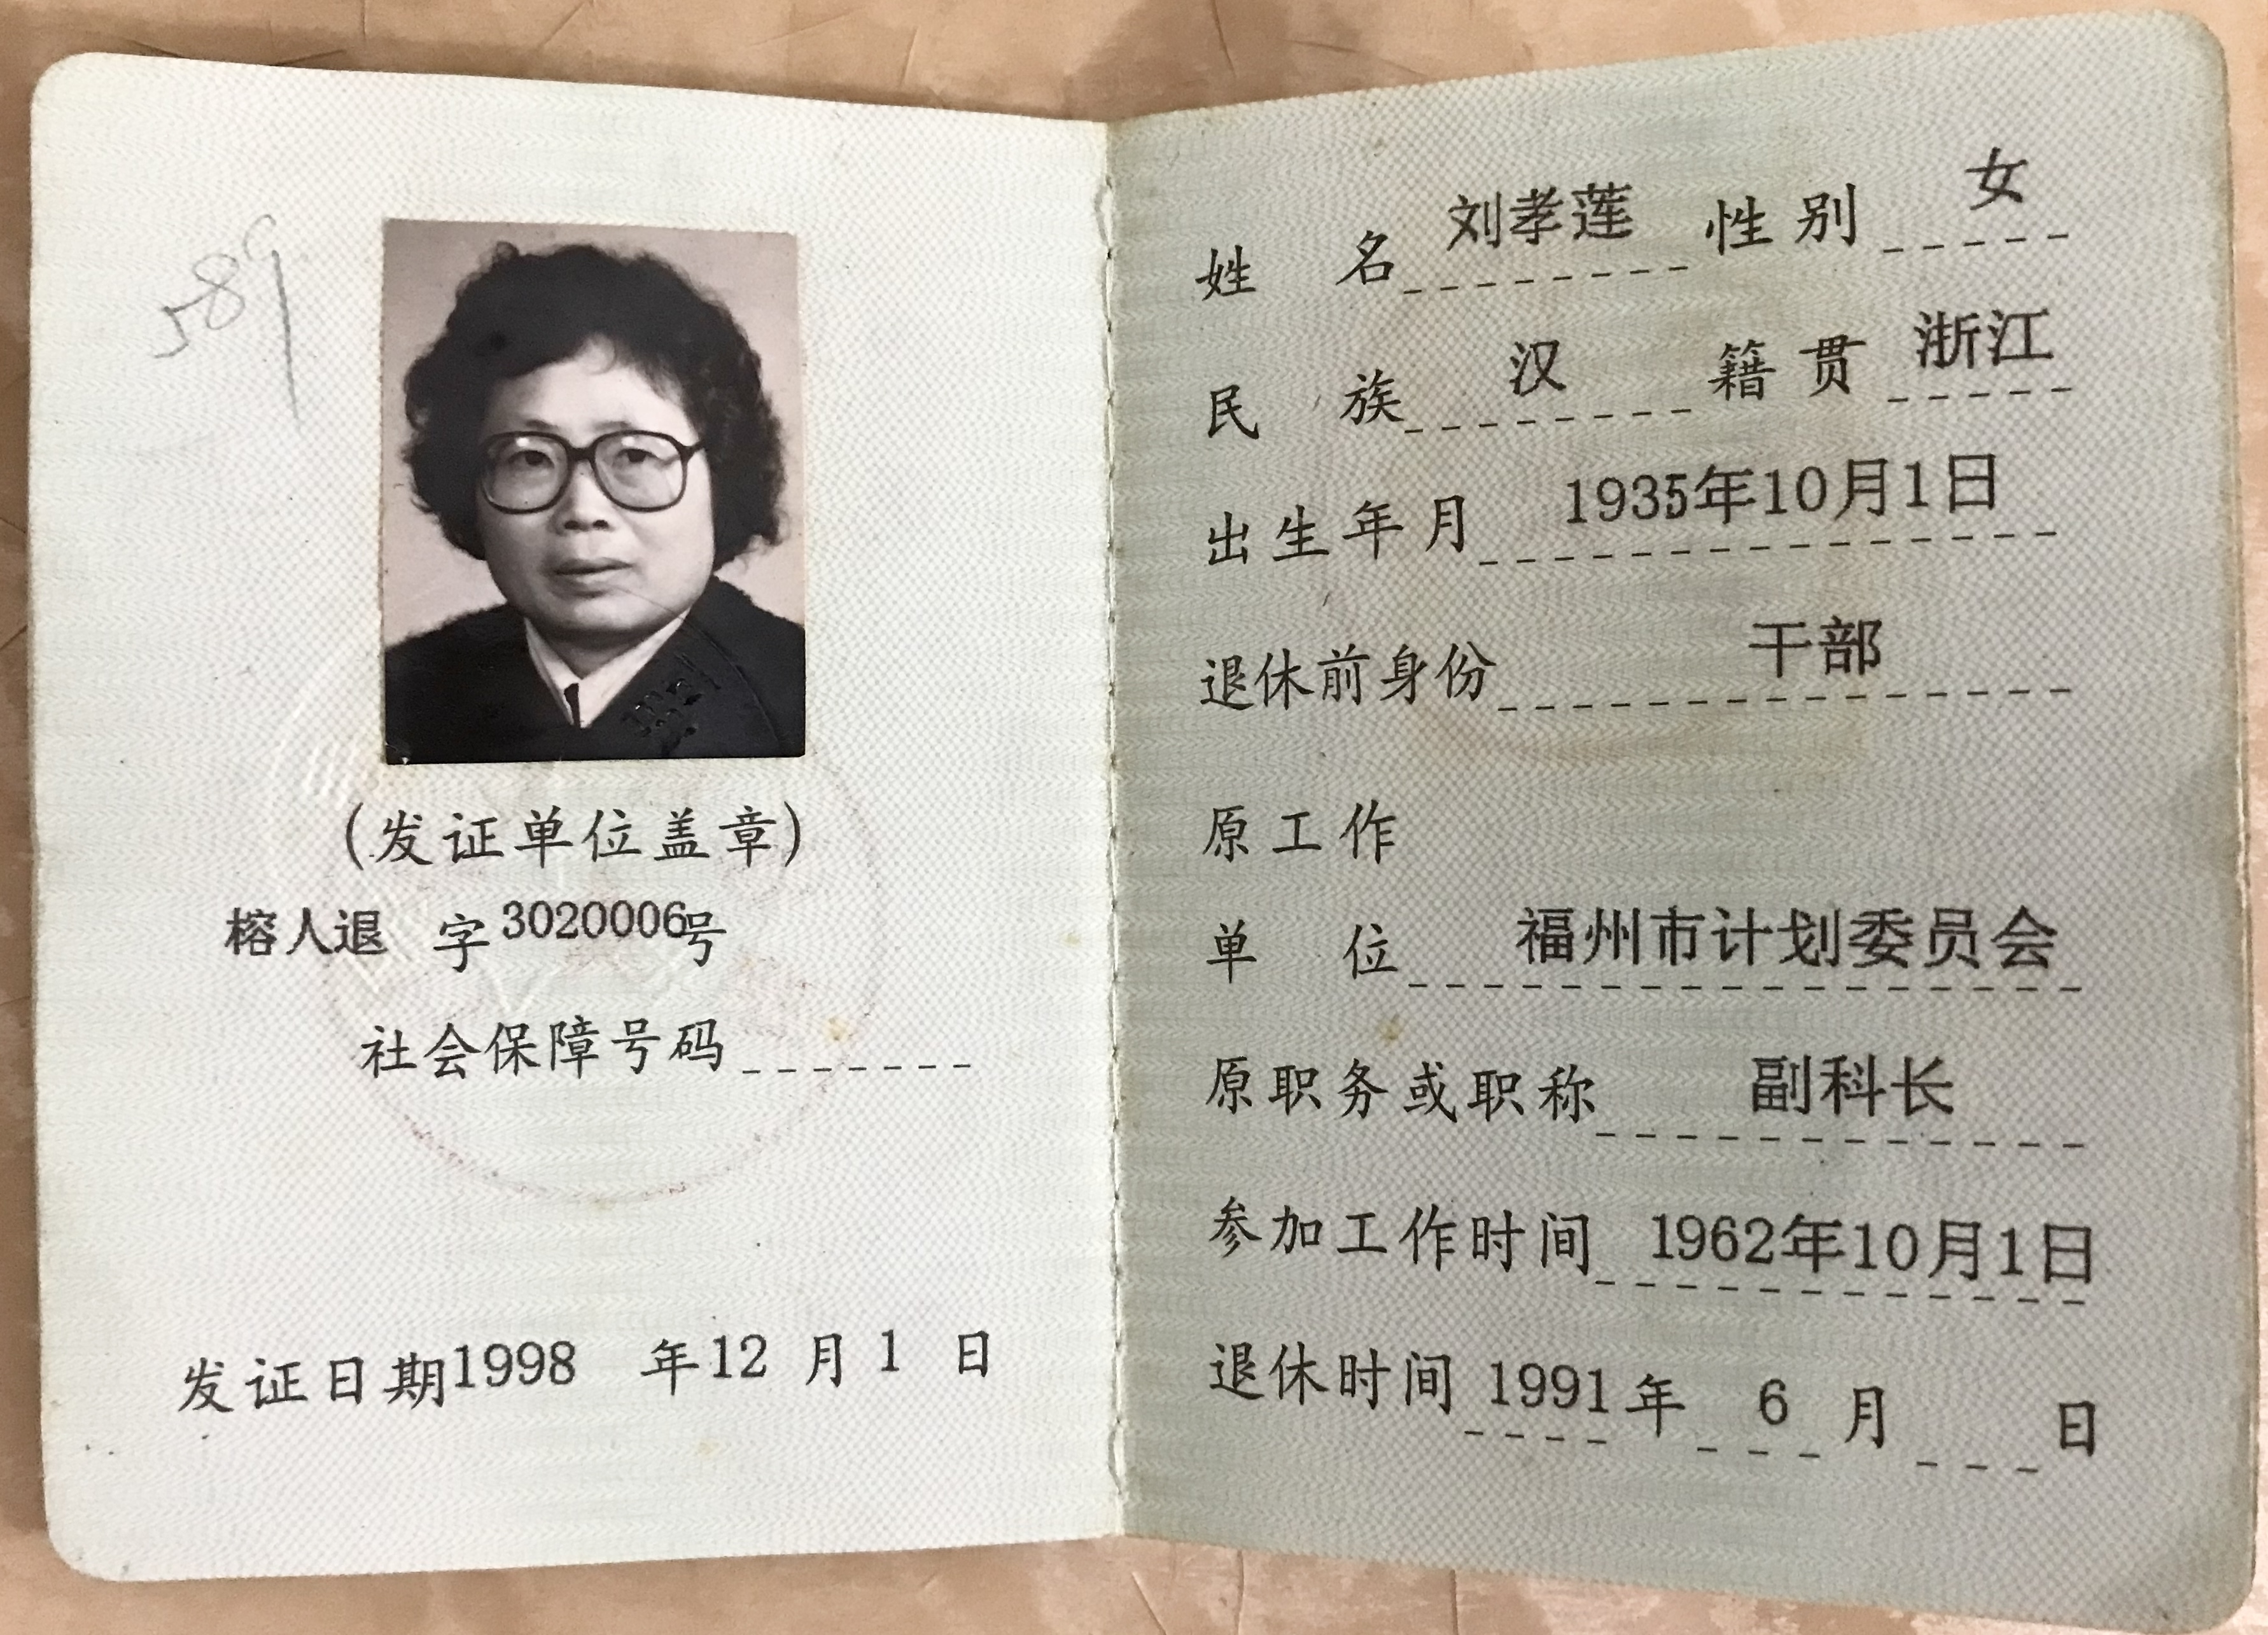 589
(发证单位盖章)
榕人退 字3020006号
社会保障号码
发证日期1998 年12 月 1 日
姓 名 刘孝莲 性别 女
民 族 汉 籍贯 浙江
出生年月 1935年10月1日
退休前身份 干部
原工作
单 位 福州市计划委员会
原职务或职称 副科长
参加工作时间 1962年10月1日
退休时间 1991年 6 月 日